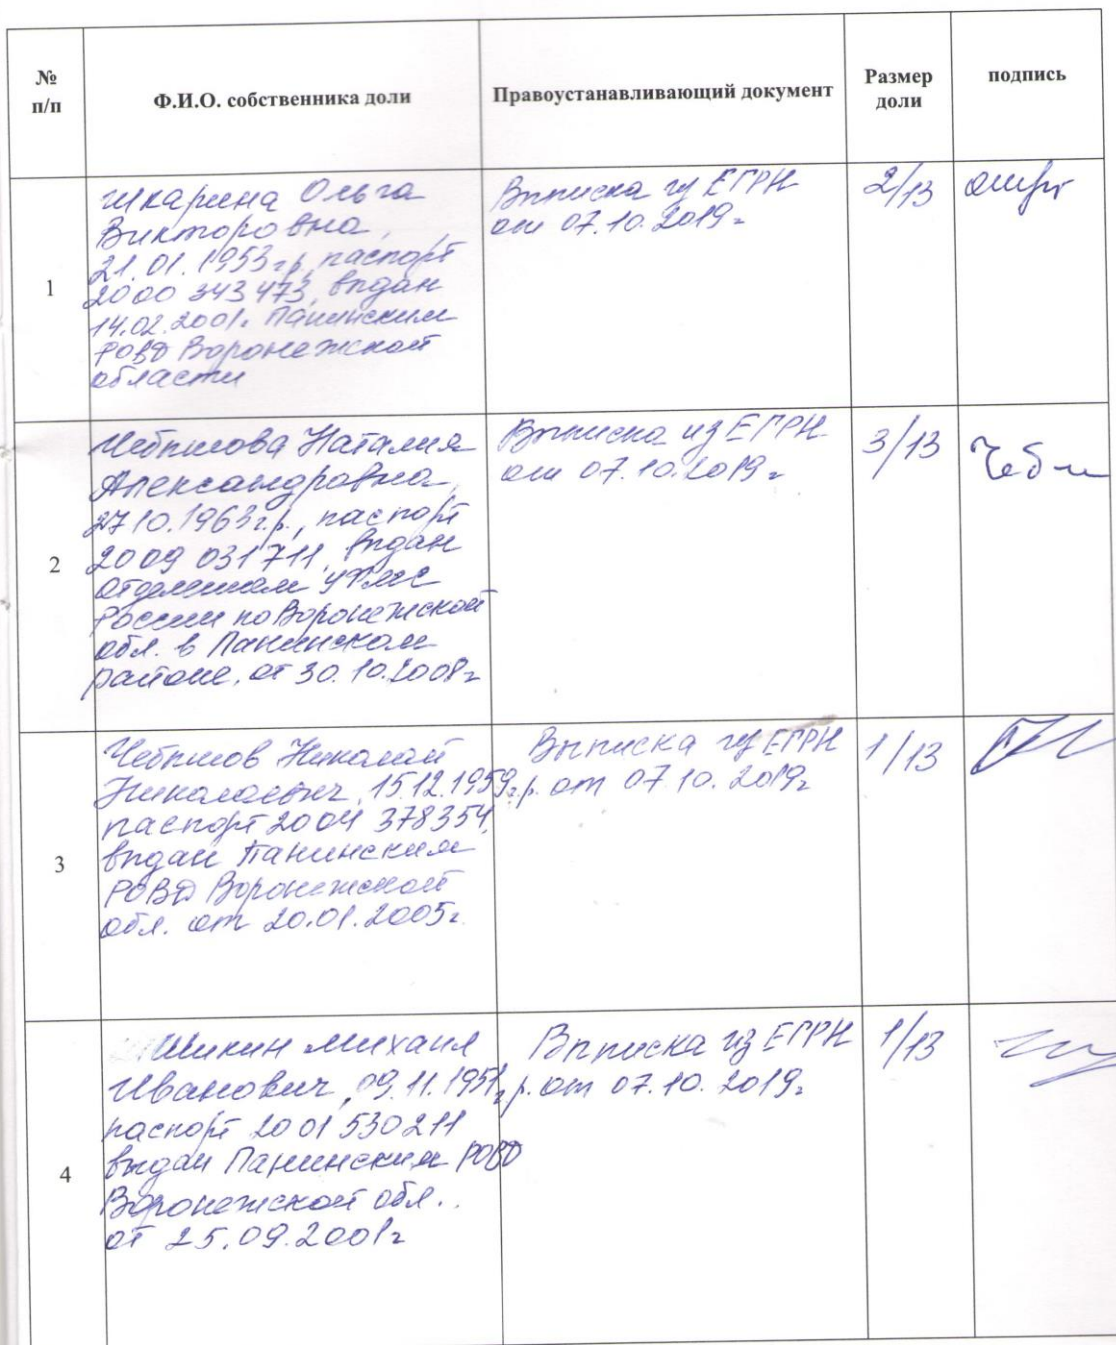 №
п/п
Ф.И.О. собственника доли
Правоустанавливающий документ
Размер
доли
подпись
1
Шкарина Ольга
Викторовна,
21.01.1953 г.р., паспорт
2000 343473, выдан
14.02.2001. Панинским
РОВД Воронежской
области
Выписка из ЕГРН
от 07.10.2019г
2/13
2
Чебышова Наталия
Александровна,
27.10.1963г.р., паспорт
2009 031711, выдан
отделением УФМС
России по Воронежской
обл. в Панинском
районе, от 30.10.2008г
Выписка из ЕГРН
от 07.10.2019г
3/13
3
Чебышов Николай
Николаевич, 15.12.1959г.р.
паспорт 2004 378354,
выдан Панинским
РОВД Воронежской
обл. от 20.01.2005г.
Выписка из ЕГРН
от 07.10.2019г
1/13
4
Шикин Михаил
Иванович, 09.11.1951г.р.
паспорт 2001 530211
выдан Панинским РОВД
Воронежской обл.
от 25.09.2001г
Выписка из ЕГРН
от 07.10.2019г
1/13